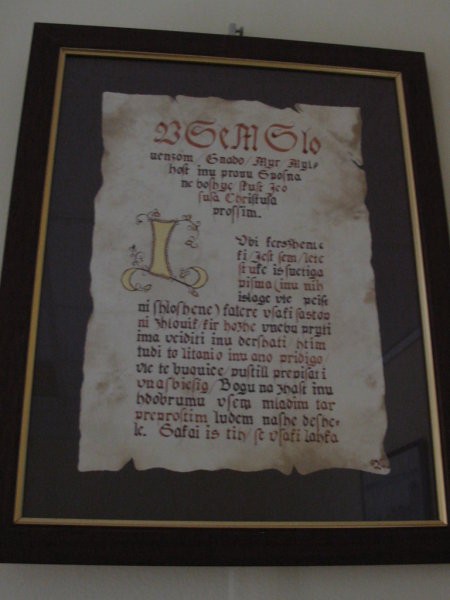 VSeM Slo
uenzom / Gnado / Myr Myl-
host inu pravu Sposna
ne boshye skusi Jeo
susa Christusa
prossim.
LVbi kerszheni-
ki / Jest sem / lete
stuke is svetiga
pisma (inu nih
islage vte peisni
shloshene) katere vsaki sastop
ni zhlouik / kir hozhe vnebu pryti
ima veiditi inu dershati / htim
tudi to litanio inu ano pridigo
vte te buquice / pustill prepisati
vnasbiesig / Bogu na zhast inu
hdobrumu vsem mladim tar
preprostim ludem nashe deshe-
le. Sakai is tih / se vsaki lahka